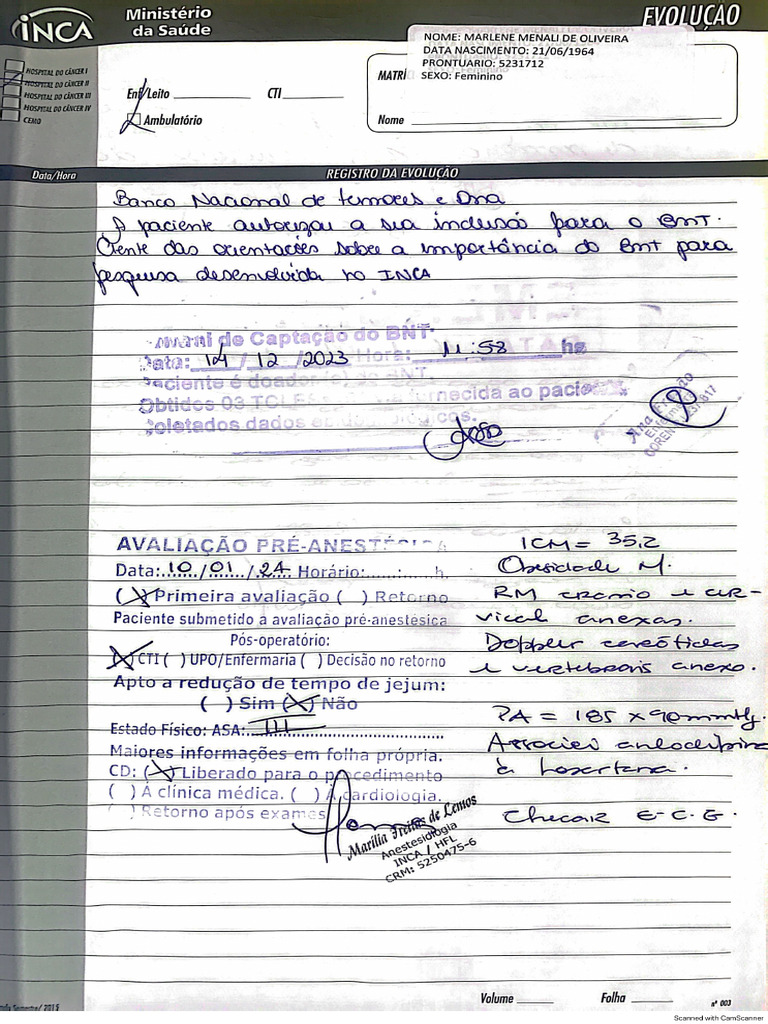 INCA
Ministério
da Saúde
EVOLUÇÃO
NOME: MARLENE MENALI DE OLIVEIRA
DATA NASCIMENTO: 21/06/1964
PRONTUARIO: 5231712
SEXO: Feminino
MATRÍ
HOSPITAL DO CÂNCER I
HOSPITAL DO CÂNCER II
HOSPITAL DO CÂNCER III
HOSPITAL DO CÂNCER IV
CEMO
Enf/Leito CTI
Ambulatório
Nome
Data/Hora REGISTRO DA EVOLUÇÃO
Banco Nacional de tumores e Dna
A paciente autorizou a sua inclusão para o BNT.
Ciente das orientações sobre a importância do BNT para
pesquisa desenvolvida no INCA
de Captação do BNT.
Data: 14/12/2023 Hora: 11:58 hs
Paciente é doador
Obtidos 03 fornecida ao
Coletados dados
AVALIAÇÃO PRÉ-ANESTÉSICA
Data: 10/01/24 Horário: : h.
(X) Primeira avaliação ( ) Retorno
Paciente submetido à avaliação pré-anestésica
Pós-operatório:
(X) CTI ( ) UPO/Enfermaria ( ) Decisão no retorno
Apto a redução de tempo de jejum:
( ) Sim (X) Não
Estado Físico: ASA: III
Maiores informações em folha própria.
CD: (X) Liberado para o procedimento
( ) À clínica médica. ( ) À cardiologia.
( ) Retorno após exames
ICM = 35,2
Obesidade M.
RM cranio e cer-
vical anexas.
Doppler careótidas
e vertebrais anexo.
PA = 185 x 90 mmHg.
Associei anlodipina
à losartana.
Checar E.C.G.
Marília Freitas de Lemos
Anestesiologia
INCA / HFL
CRM: 5250475-6
Volume Folha nº 003
Scanned with CamScanner